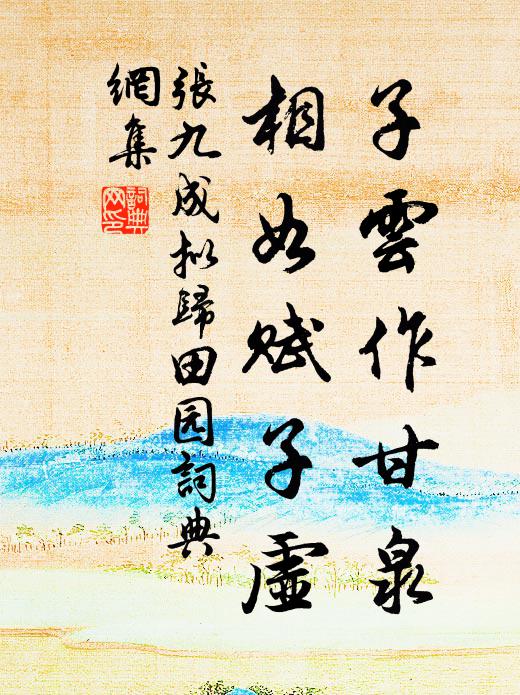 子雲作甘泉
相如赋子虛
張九成拟歸田园詞典
網集
詞典
网印